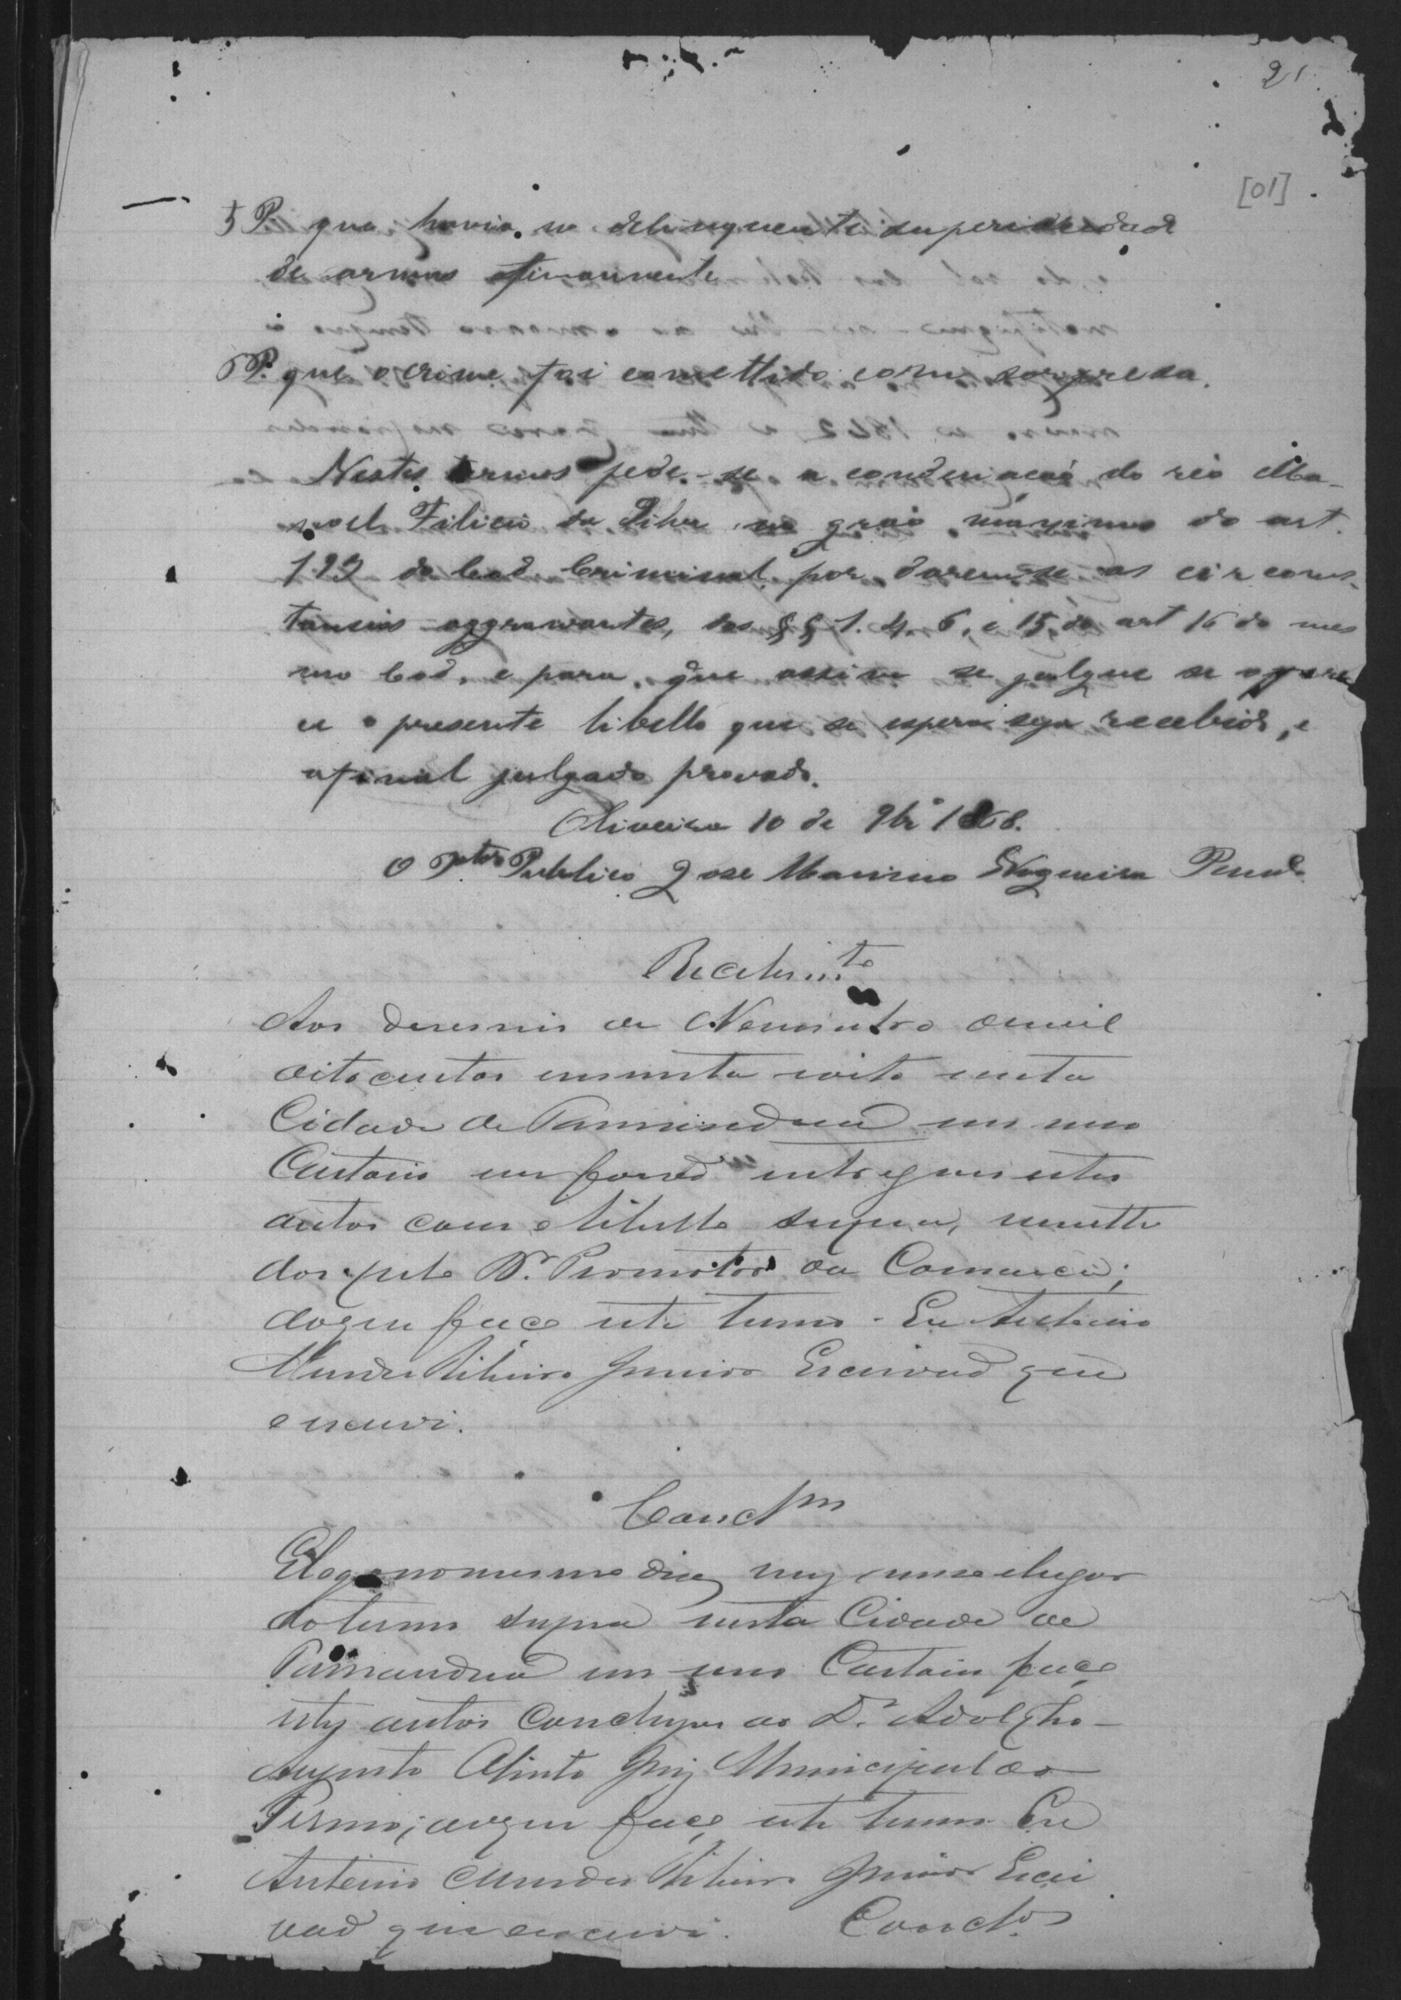 21
[01]
5 P. que havia no delinquente superioridade
de armas
6 P. que o crime foi comettido com sorpresa.
Nestes termos pede-se a condenação do reo Ma-
noel Felicio da Silva no gráo maximo do art.
193 do Cod. Criminal por darem-se as circoms-
tancias aggravantes, dos §§ 1. 4. 6. e 15 do art 16 do mes
mo Cod. e para que assim se julgue se offere
ce o presente libello que se espera seja recebido, e
afinal julgado provado.
Oliveira 10 de 9br.º 1868.
O P.tor Publico José Marcino Nogueira Penido
Recebim.to
Aos deseseis de Novembro de mil
oitocentos sessenta e oito nesta
Cidade de Tamanduá em meu
Cartorio me forão entregues estes
autos com o libello supra, remetti
dos pelo Dr. Promotor da Comarca;
do que faço este termo. Eu Antonio
Mendes Ribeiro Junior Escrivão que
escrevi.
Concl.m
E logo no mesmo dia, mez, anno e lugar
do termo supra nesta Cidade de
Tamanduá em meu Cartorio faço
estes autos conclusos ao Dr. Adolpho
Augusto Olinto Juiz Municipal do
Termo; do que faço este termo Eu
Antonio Mendes Ribeiro Junior Escri
vão que escrevi. Concl.os